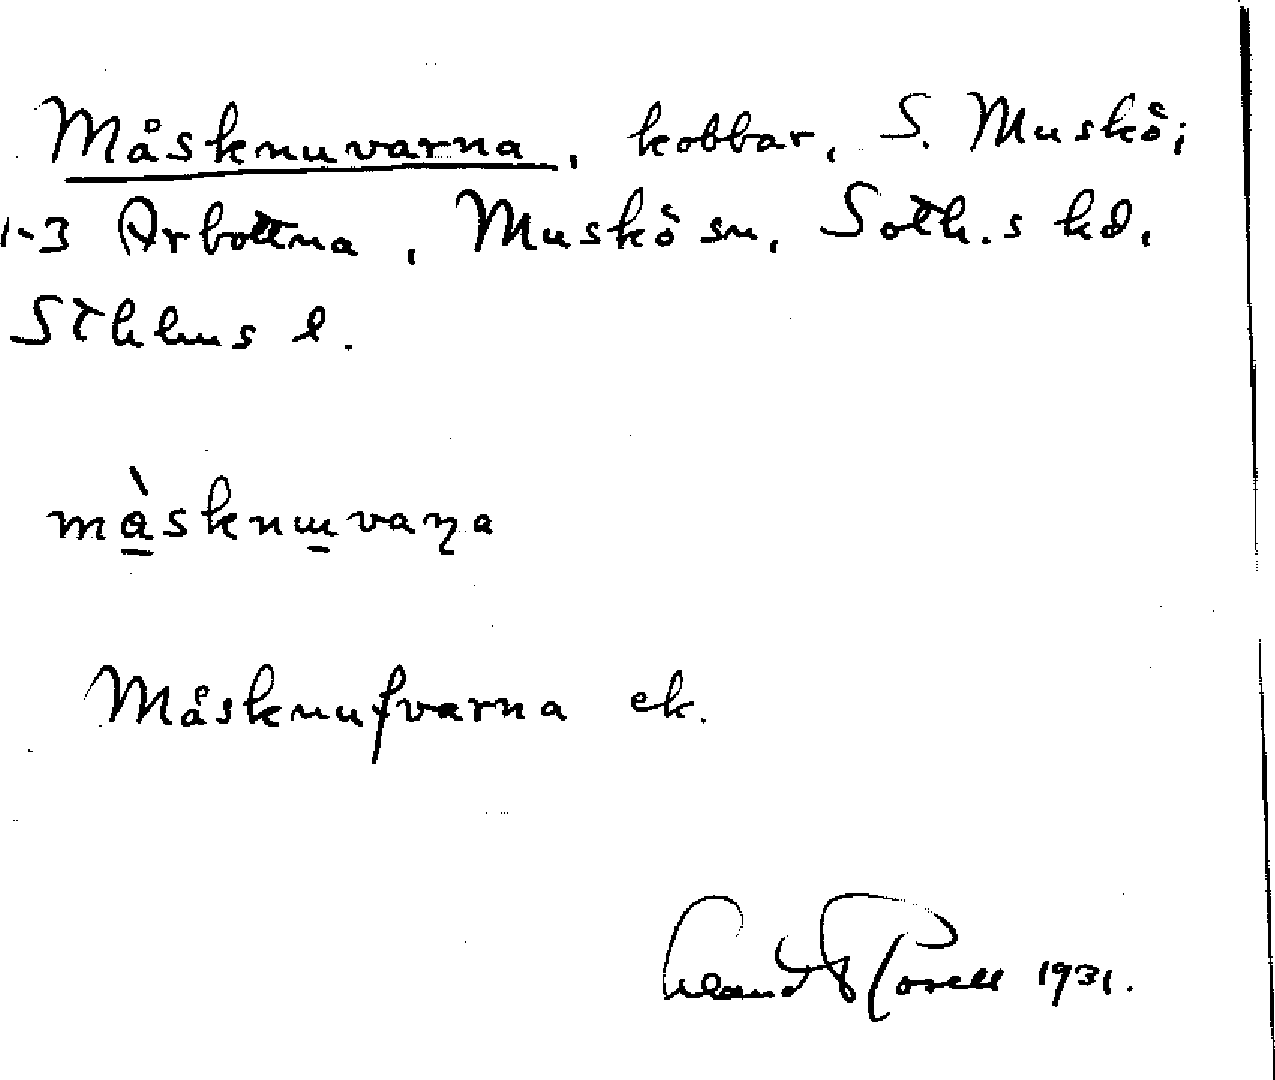 Måsknuvarna, kobbar, S. Muskö;
1-3 Arbottna, Muskö sn, Soth.s hd,
Sthlms l.
måsknuvaɳa
Måsknufvarna ek.
Erland Rosell 1931.